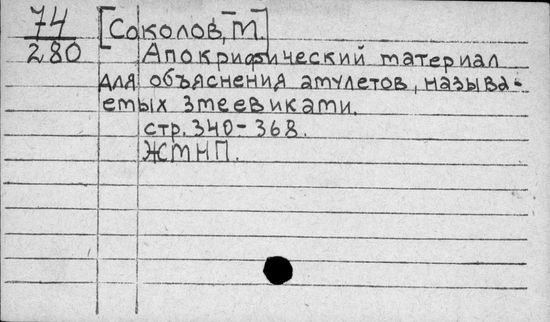 74
280
[Соколов, М.]
Апокрифический материал
для объяснения амулетов, называ-
емых змеевиками.
стр. 340-368.
ЖМНП.